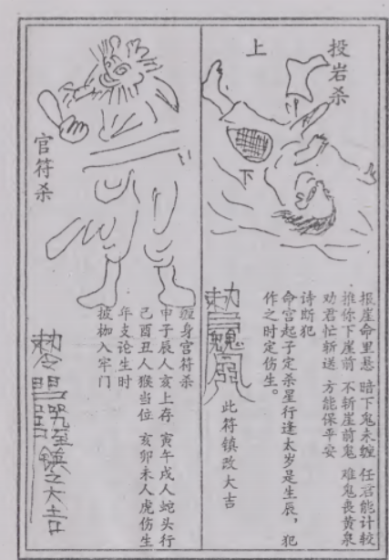 投岩杀
上
下
报崖命里悬 暗下鬼来缠 任君能计较
推你下崖前 不斩崖前鬼 难免丧黄泉
劝君忙斩送 方能保平安
诗断犯
命宫起子定杀星行逢太岁是生辰，犯
作之时定伤生。
此符镇改大吉
官符杀
身官符杀
申子辰人亥上存 寅午戌人蛇头行
己酉丑人猴当位 亥卯未人虎伤生
年支论生时
披枷入牢门
镇之大吉